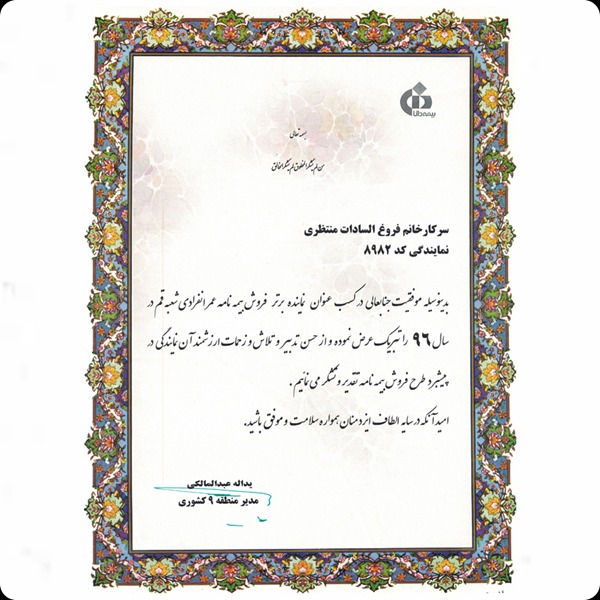 بیمه دانا
بسمه تعالی
من لم یشکر المخلوق لم یشکر الخالق
سرکار خانم فروغ السادات منتظری
نمایندگی کد ۸۹۸۲
بدینوسیله موفقیت جنابعالی در کسب عنوان نماینده برتر فروش بیمه نامه عمر انفرادی شعبه قم در
سال ۹۶ را تبریک عرض نموده و از حسن تدبیر و تلاش و زحمات ارزشمند آن نمایندگی در
پیشبرد طرح فروش بیمه نامه تقدیر و تشکر می نمایم .
امید آنکه در سایه الطاف ایزد منان همواره سلامت و موفق باشید.
یداله عبدالمالکی
مدیر منطقه ۹ کشوری